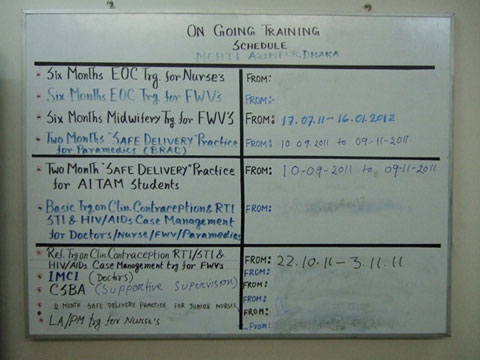 ON GOING TRAINING
SCHEDULE
MCHTI AZIMPUR, DHAKA
Six Months EOC Trg. for Nurse's FROM:
Six Months EOC Trg. for FWV's FROM:-
Six Months Midwifery Trg. for FWV's FROM: 17.07.11 - 16.01.2012
Two Months "SAFE DELIVERY" Practice FROM: 10.09.2011 to 09-11-2011
for Paramedics (BRAC)
Two Month "SAFE DELIVERY" Practice FROM: 10-09-2011 to 09-11-2011
for AITAM Students
Basic Trg on Clin. Contraception & RTI FROM:
STI & HIV/AIDs Case Management
for Doctors/Nurse/FWV/Paramedics
Ref. Trg on Clin Contraception RTI/STI & FROM: 22.10.11 - 3.11.11
HIV/AIDs Case Management trg for FWVs
IMCI (Doctors) FROM:
CSBA (Supportive Supervision) FROM:
MONTH SAFE DELIVERY PRACTICE FOR JUNIOR NURSE FROM:
FROM:
LA/PM trg for Nurse's From: